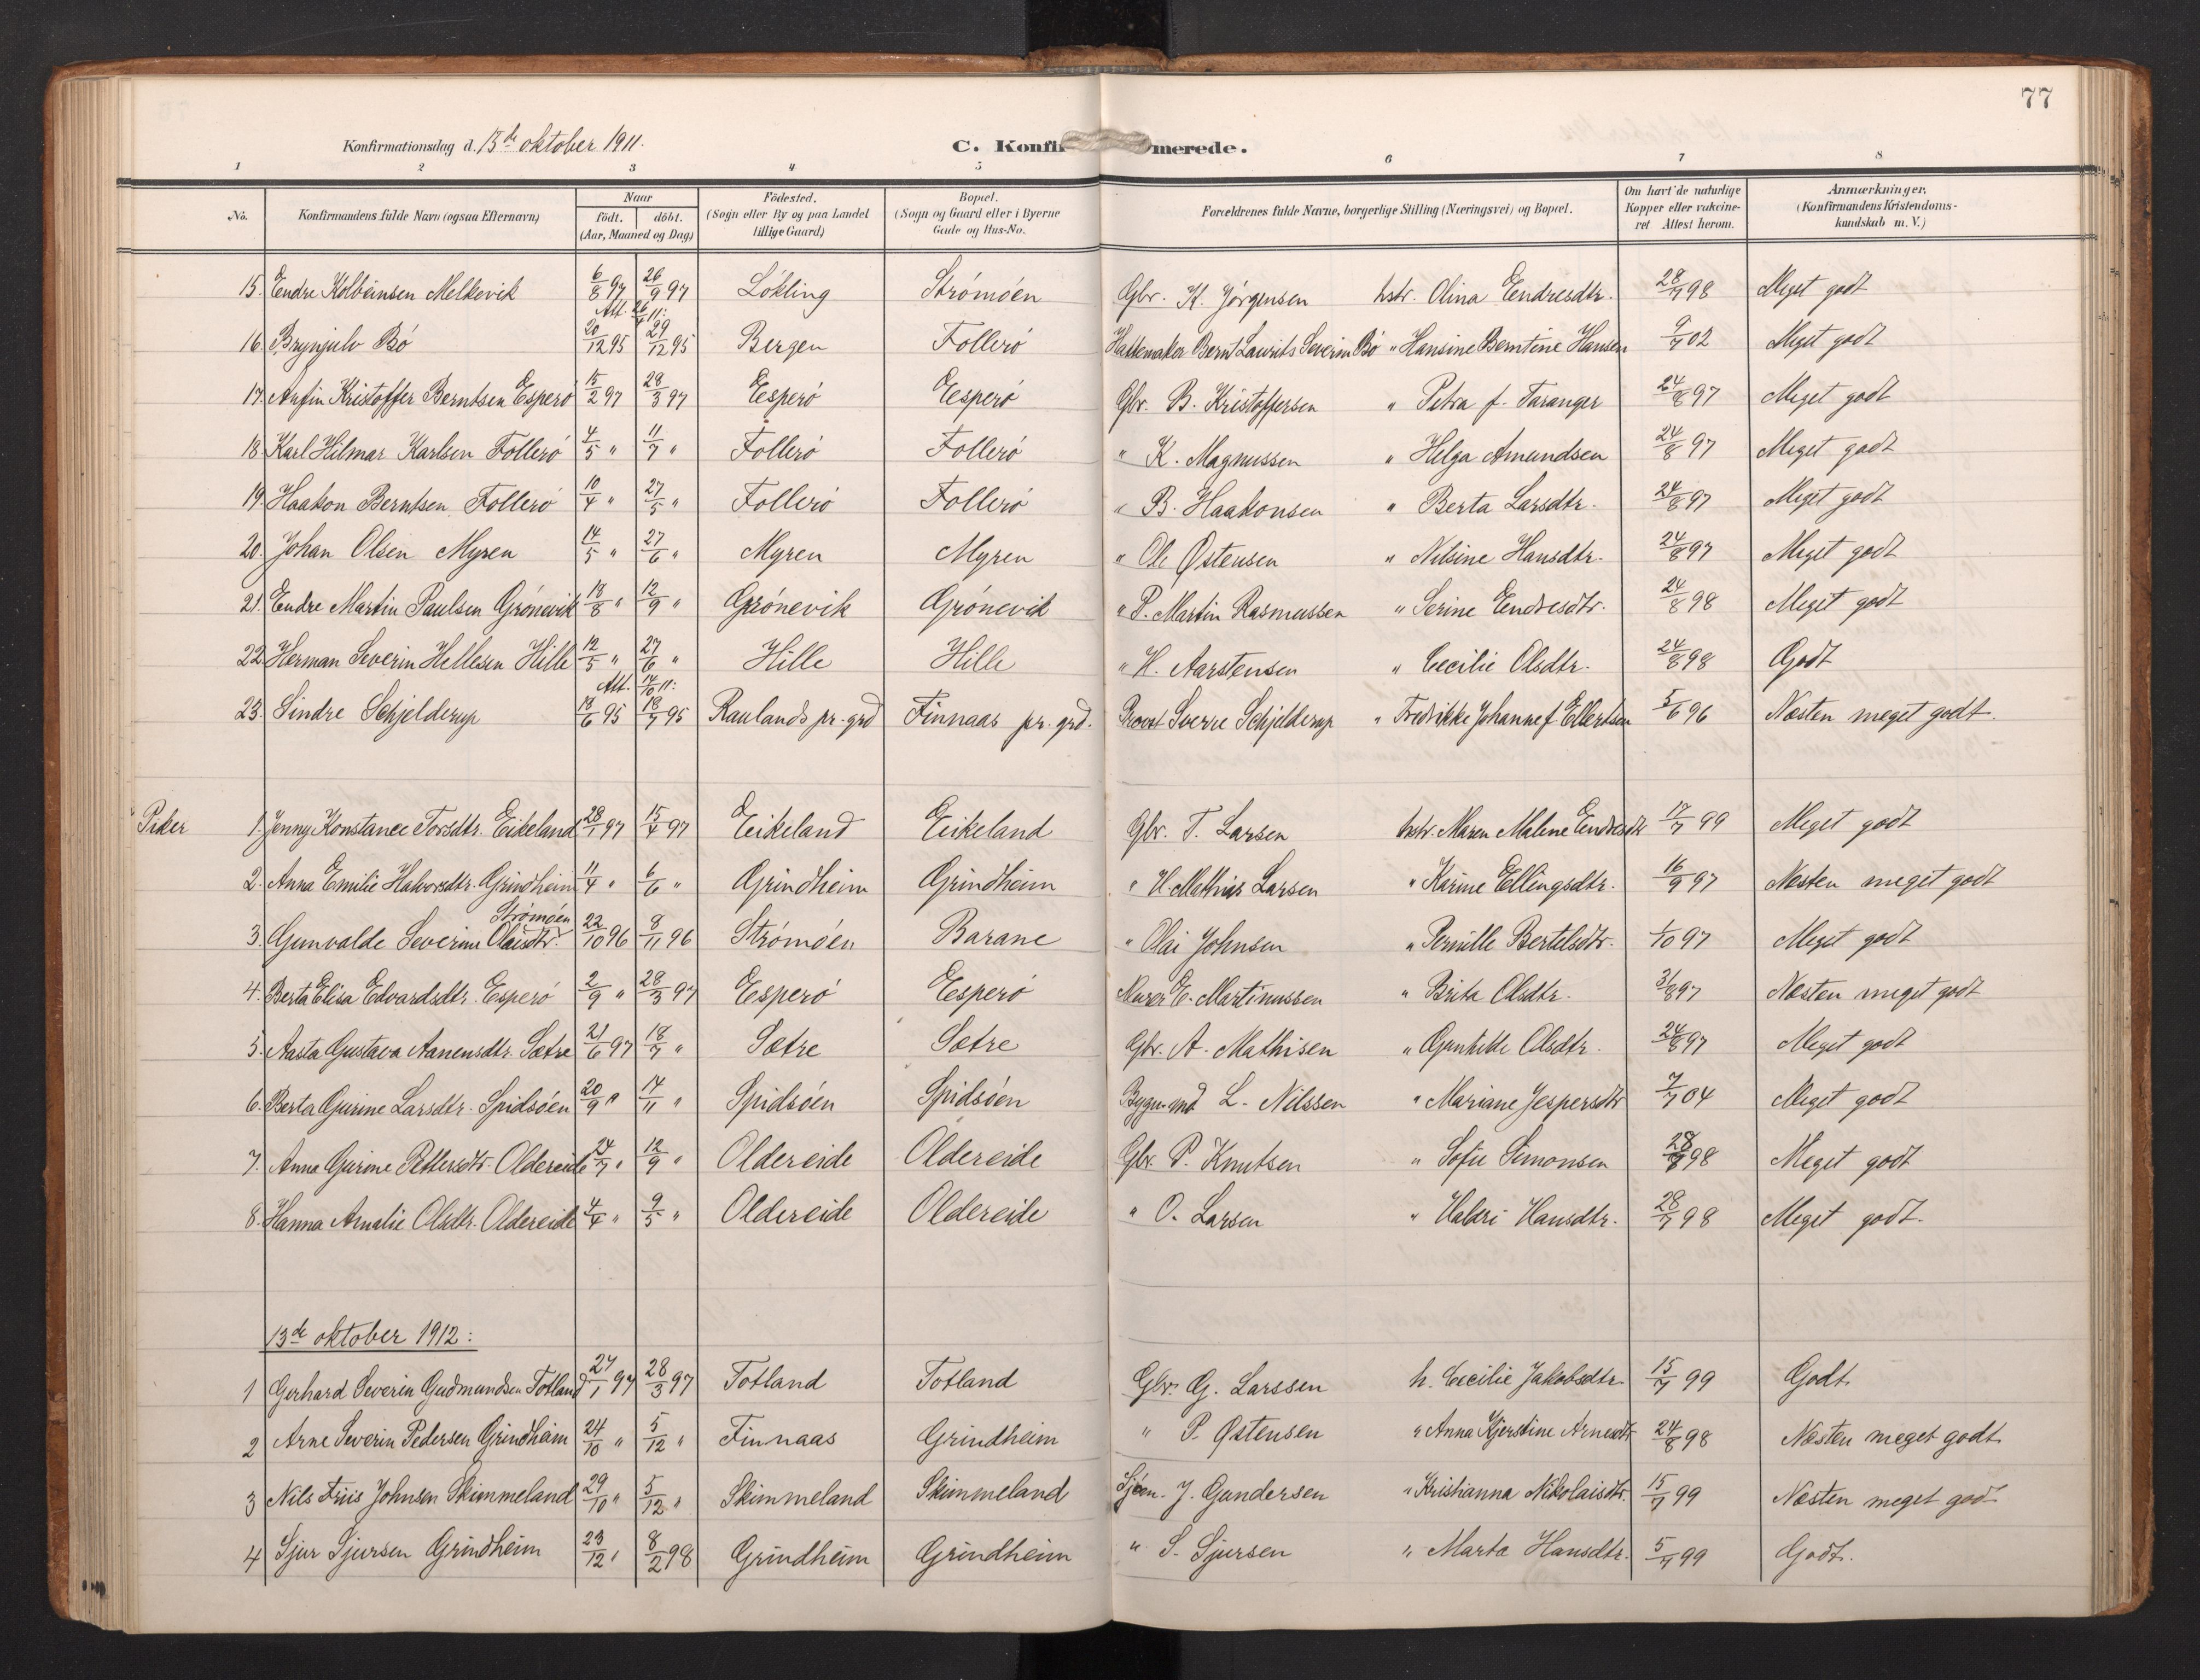 77
Konfirmationsdag d. 15de oktober 1911.
C. Konfirmerede.
1 2 3 4 5 6 7 8
No. Konfirmandens fulde Navn (ogsaa Efternavn) Naar født. døbt. (Aar, Maaned og Dag) Fødested. (Sogn eller By og paa Landet tillige Gaard) Bopæl. (Sogn og Gaard eller i Byerne Gade og Hus-No. Forældrenes fulde Navne, borgerlige Stilling (Næringsvei) og Bopæl. Om havt de naturlige Kopper eller vakcineret Attest herom. Anmærkninger. (Konfirmandens Kristendomskundskab m. V.)
15. Endre Kolbeinsen Melkevik 6/8 97 26/9 97 Løkling Strømøen Gbr. K. Jørgensen hstr. Olina Eendresdtr. 28/7 98 Meget godt
Att. 26/4 11:
16. Brynjulv Bø 20/12 95 29/12 95 Bergen Follerø Hattemaker Bernt Laurits Severin Bø " Hansine Berntine Hansen 9/7 02 Meget godt
17. Anfin Kristoffer Berntsen Esperø 15/2 97 28/3 97 Esperø Esperø Gbr. B. Kristoffersen " Petra f. Taranger 24/8 97 Meget godt
18. Karl Hilmar Karlsen Follerø 4/5 " 11/7 " Follerø Follerø " K. Magnussen " Helga Amundsen 24/8 97 Meget godt
19. Haakon Berntsen Follerø 10/4 " 27/5 " Follerø Follerø " B. Haakonsen " Berta Larsdtr. 24/8 97 Meget godt
20. Johan Olsen Myren 14/5 " 27/6 " Myren Myren " Ole Østensen " Nilsine Hansdtr. 24/8 97 Meget godt
21. Endre Martin Paulsen Grønevik 18/8 " 12/9 " Grønevik Grønevik " P. Martin Rasmussen " Serine Eendresdtr. 24/8 98 Meget godt
22. Herman Severin Hellesen Hille 12/5 " 27/6 " Hille Hille " H. Aarstensen " Cecilie Olsdtr. 24/8 98 Godt
Att. 14/10 11:
23. Sindre Schjelderup 18/6 95 18/7 95 Raulands pr.-grd Finnaas pr. grd. Provst Sverre Schjelderup " Fredrikke Johanne f Ellertsen 5/6 96 Næsten meget godt.
Piker 1. Jenny Konstance Torsdtr. Eikeland 28/1 97 15/4 97 Eikeland Eikeland Gbr. T. Larsen hstr. Maren Malene Eendresdtr 17/7 99 Meget godt
2. Anna Emilie Halvorsdtr. Grindheim 11/4 " 6/6 " Grindheim Grindheim " H. Mathias Larsen " Karine Ellingsdtr. 16/9 97 Næsten meget godt
Strømøen
3. Gunvalde Severine Olaisdtr. 22/10 96 8/11 96 Strømøen Barane " Olai Johnsen " Pernille Bertelsdtr. 1/10 97 Meget godt
4. Berta Elisa Edvardsdtr. Esperø 2/9 " 28/3 97 Esperø Esperø Murer E. Martinussen " Brita Olsdtr. 31/8 97 Næsten meget godt
5. Aasta Gustava Aanensdtr. Sætre 21/6 97 18/7 " Sætre Sætre Gbr. A. Mathisen " Gunhilde Olsdtr. 24/8 97 Meget godt
6. Berta Gurine Larsdtr. Spidsøen 20/9 " 14/11 " Spidsøen Spidsøen Bygn.md L. Nilssen " Mariane Jespersdtr 7/7 04 Meget godt
7. Anna Gurine Pettersdtr. Oldereide 24/7 " 12/9 " Oldereide Oldereide Gbr. P. Knutsen " Sofie Simonsen 28/7 98 Meget godt
8. Hanna Amalie Olsdtr. Oldereide 4/4 " 9/5 " Oldereide Oldereide " O. Larsen " Valdri Hansdtr. 28/7 98 Meget godt.
13de oktober 1912:
1 Gerhard Severin Gudmundsen Totland 27/1 97 28/3 97 Totland Totland Gbr. G. Larssen h. Cecilie Jakobsdtr. 15/7 99 Godt.
2 Arne Severin Pedersen Grindheim 24/10 " 5/12 " Finnaas Grindheim " P. Østensen " Anna Kjerstine Arnesdtr 24/8 98 Næsten meget godt.
3 Nils Friis Johnsen Skimmeland 29/10 " 5/12 " Skimmeland Skimmeland Sjøm. J. Gundersen " Kristianna Nikolaisdtr. 15/7 99 Næsten meget godt
4 Sjur Sjursen Grindheim 23/12 " 8/2 98 Grindheim Grindheim " S. Sjursen " Marta Hansdtr. 5/7 99 Godt.